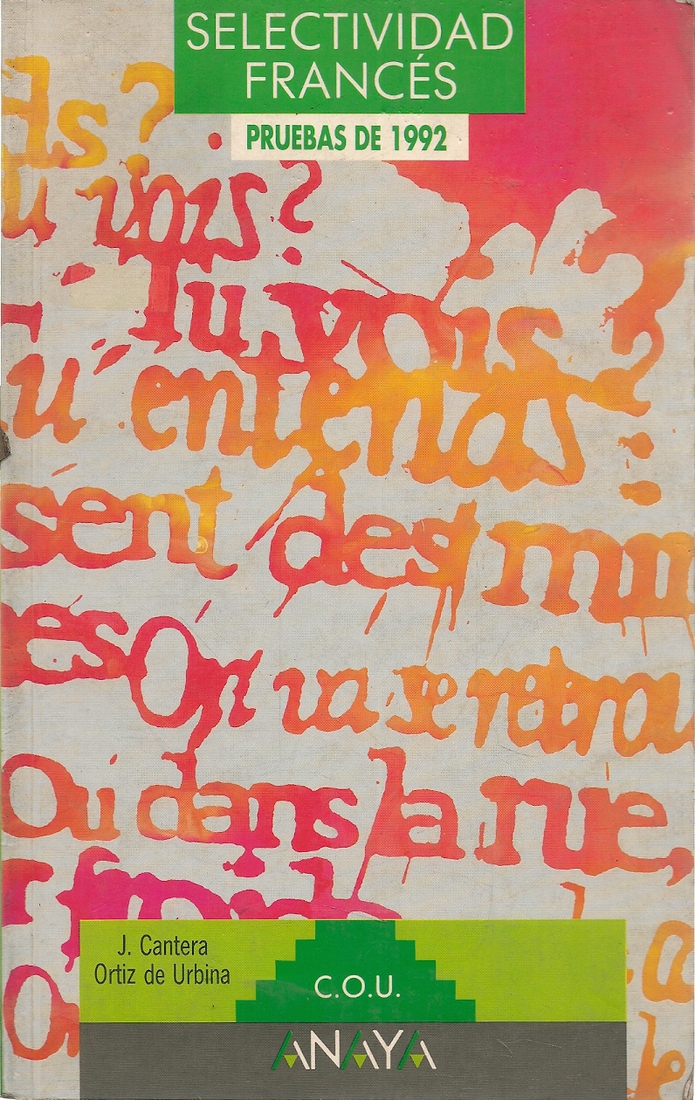 SELECTIVIDAD
FRANCÉS
PRUEBAS DE 1992
ds?
u vois?
Tu vois?
Tu entends?
sent des
es On va se retrou
Où dans la rue,
J. Cantera
Ortiz de Urbina
C.O.U.
ANAYA